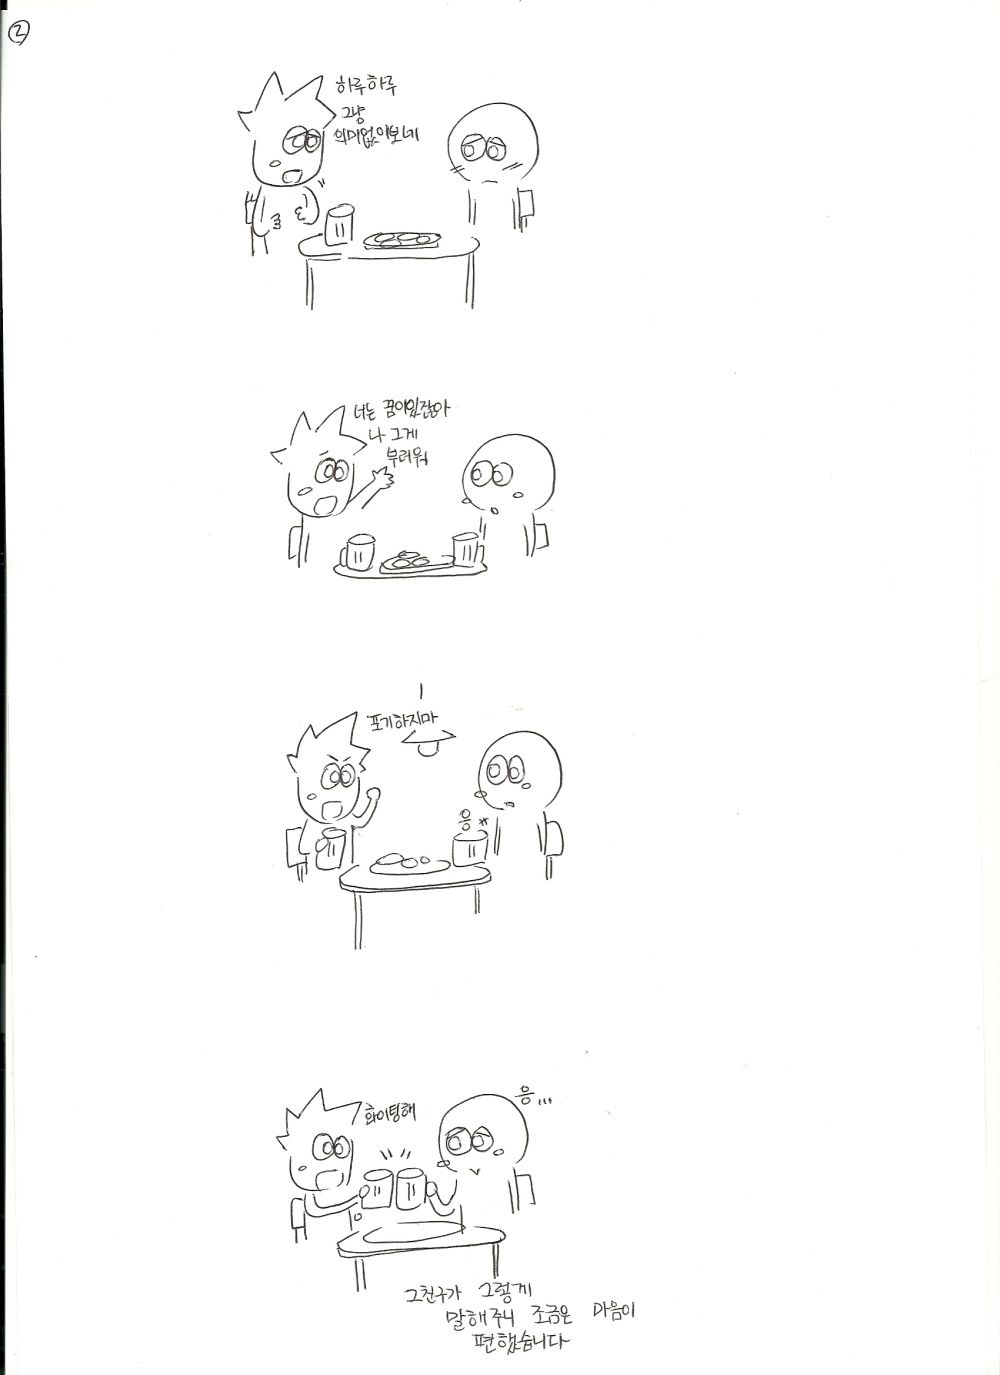 ②
하루하루
그냥
의미없이보내
너는 꿈이있잖아
나 그게
부러워
포기하지마
응
화이팅해
응...
그친구가 그렇게
말해주니 조금은 마음이
편했습니다